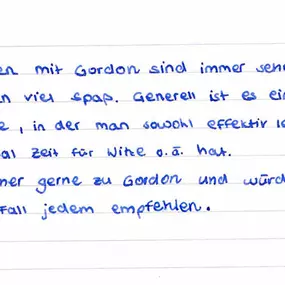 en mit Gordon sind immer seh
n viel Spaß. Generell ist es ei
e, in der man sowohl effektiv le
al Zeit für Witze o.ä. hat.
mer gerne zu Gordon und würd
Fall jedem empfehlen.